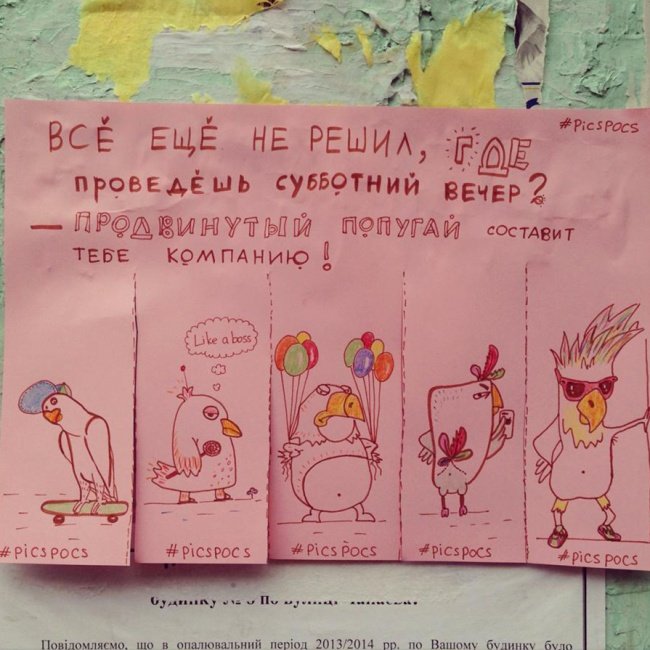 #PICSPOCS
ВСЁ ЕЩЁ НЕ РЕШИЛ, ГДЕ
ПРОВЕДЁШЬ СУББОТНИЙ ВЕЧЕР?
— ПРОДВИНУТЫЙ ПОПУГАЙ СОСТАВИТ
ТЕБЕ КОМПАНИЮ!
Like a boss
#PICSPOCS
#PICSPOCS
#PICSPOCS
#PICSPOCS
#PICSPOCS
будинку № по вулиці
Повідомляємо, що в опалювальний період 2013/2014 рр. по Вашому будинку було